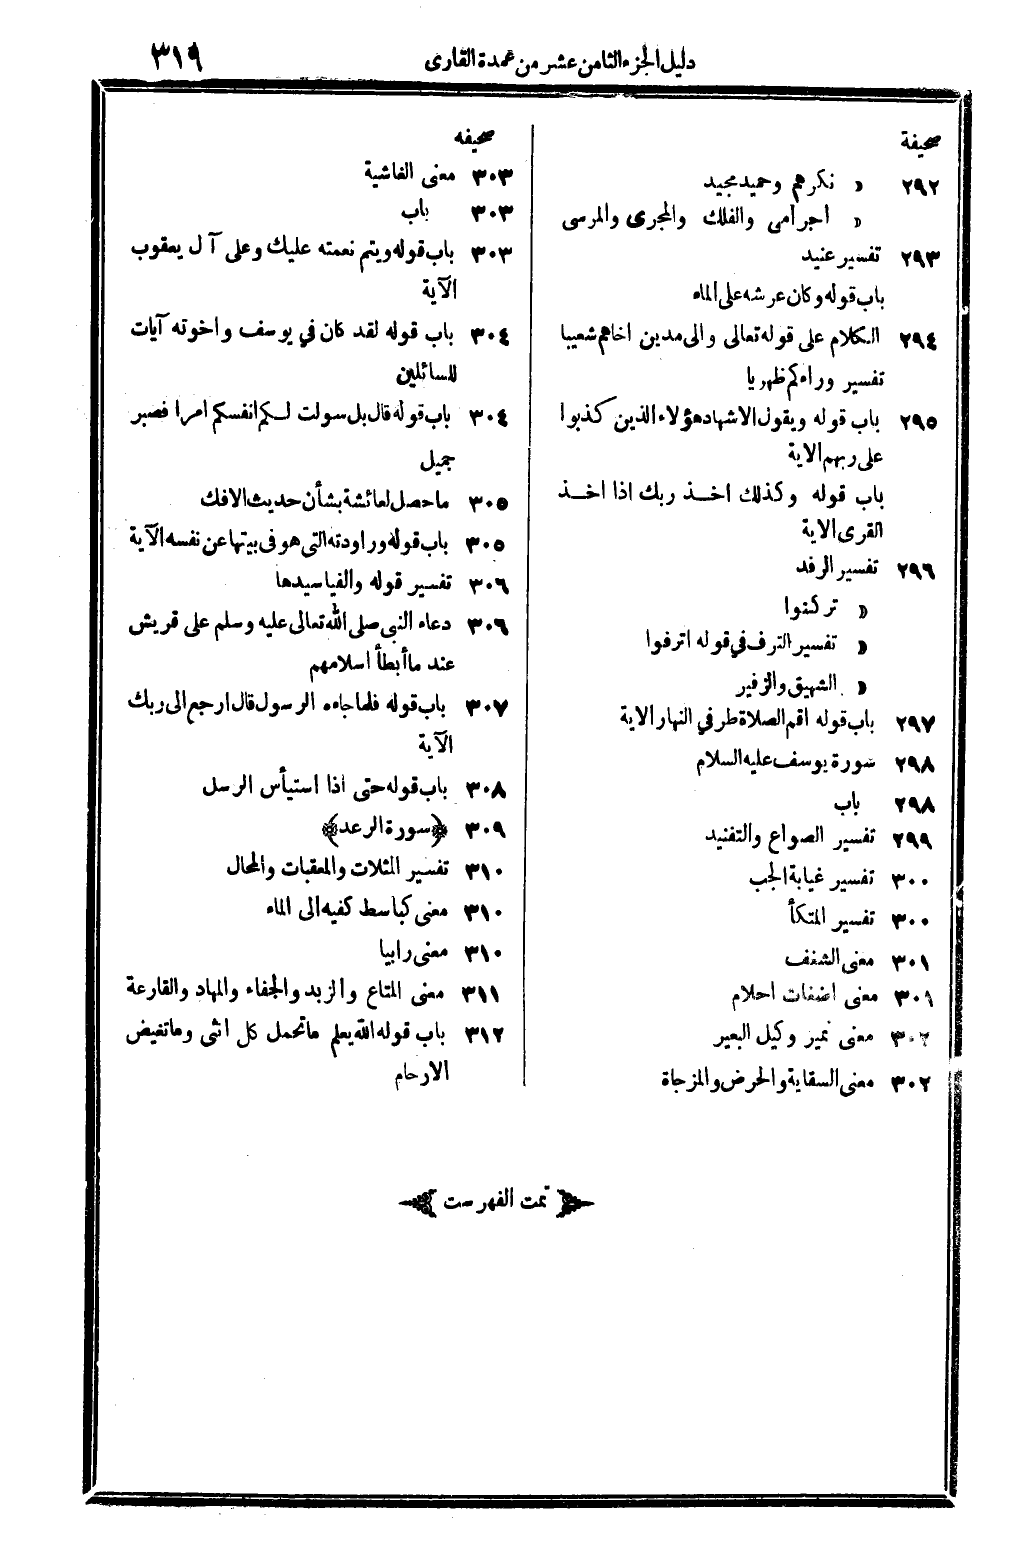 دليل الجزء الثامن عشر من عمدة القارى
٣١٩
صحيفة
٢٩٢ « نكرهم وحميد مجيد
« اجرامى والفلك والمجرى والمرسى
٢٩٣ تفسير عنيد
باب قوله وكان عرشه على الماء
٢٩٤ الكلام على قوله تعالى والى مدين اخاهم شعيبا
تفسير وراءكم ظهريا
٢٩٥ باب قوله ويقول الاشهاد هؤلاء الذين كذبوا
على ربهم الاية
باب قوله وكذلك اخذ ربك اذا اخذ
القرى الاية
٢٩٦ تفسير الرفد
« تركنوا
« تفسير الترف في قوله اترفوا
« الشهيق والزفير
٢٩٧ باب قوله اقم الصلاة طرفي النهار الاية
٢٩٨ سورة يوسف عليه السلام
٢٩٨ باب
٢٩٩ تفسير الصواع والتفنيد
٣٠٠ تفسير غيابة الجب
٣٠٠ تفسير المتكأ
٣٠١ معنى الشغف
٣٠١ معنى اضغات احلام
٣٠٢ معنى نمير وكيل البعير
٣٠٢ معنى السقاية والحرض والمزجاة
صحيفه
٣٠٣ معنى الغاشية
٣٠٣ باب
٣٠٣ باب قوله ويتم نعمته عليك وعلى آل يعقوب
الآية
٣٠٤ باب قوله لقد كان في يوسف واخوته آيات
للسائلين
٣٠٤ باب قوله قال بل سولت لكم انفسكم امرا فصبر
جميل
٣٠٥ ماحصل لعائشة بشأن حديث الافك
٣٠٥ باب قوله وراودته التى هو فى بيتها عن نفسه الآية
٣٠٦ تفسير قوله والفيا سيدها
٣٠٦ دعاء النبى صلى الله تعالى عليه وسلم على قريش
عند ماأبطأ اسلامهم
٣٠٧ باب قوله فلما جاءه الرسول قال ارجع الى ربك
الآية
٣٠٨ باب قوله حتى اذا استيأس الرسل
٣٠٩ ﴿سورة الرعد﴾
٣١٠ تفسير المثلات والمعقبات والمحال
٣١٠ معنى كباسط كفيه الى الماء
٣١٠ معنى رابيا
٣١١ معنى المتاع والزبد والجفاء والمهاد والقارعة
٣١٢ باب قوله الله يعلم ماتحمل كل انثى وماتغيض
الارحام
تمت الفهرست